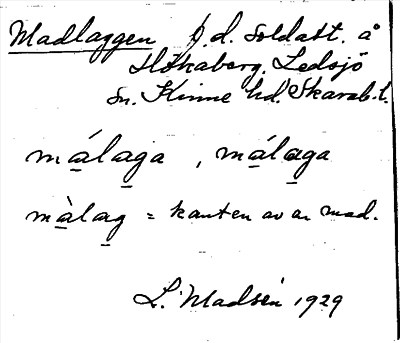 Madlaggen f. d. soldatt. å
Hökaberg, Ledsjö
sn. Kinne hd. Skarab. l.
málaga, málaga
màlag = kanten av en mad.
L. Madsén 1929